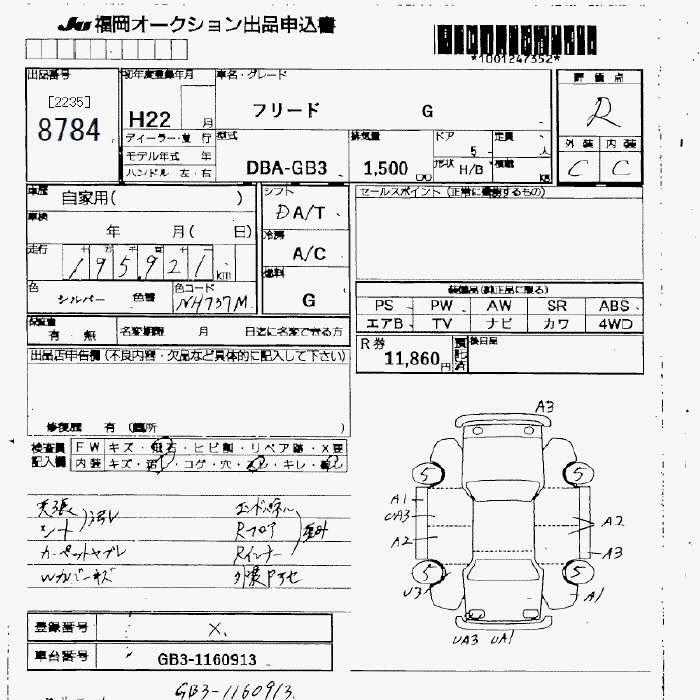 JU 福岡オークション出品申込書
*1001247352*
出品番号
[2235]
8784
初年度登録年月
H22 月
ディーラー・並 行
モデル年式 年
ハンドル 左・右
車名・グレード
フリード G
型式
DBA-GB3
排気量
1,500 cc
ドア
5
形状 H/B
定員
人
積載
KG
評価点
R
外装 内装
C C
車歴
自家用( )
車検
年 月( 日)
走行
195,921 km
色
シルバー 色替
色コード
NH737M
シフト
DA/T
冷房
A/C
燃料
G
セールスポイント(正常に機能するもの)
装備品(純正品に限る)
PS PW AW SR ABS
エアB TV ナビ カワ 4WD
保証書
有 無
名変期限 月 日迄に名変できる方
R券
11,860円
後日品
出品店申告欄(不良内容・欠品など具体的に記入して下さい)
修復歴 有 (箇所 )
検査員
記入欄
FW キズ・飛石・ヒビ割・リペア跡・X要
内装 キズ・汚レ・コゲ・穴・スレ・キレ・臭い
天張
シート 汚レ
カーペットヤブレ
Wカバーキズ
エンドパネル
Rフロア
Rインナー
A3
5 5
A1
UA3
A2
A2
A3
5 5
U3
A1
UA3 UA1
登録番号
X
車台番号
GB3-1160913
GB3-1160913